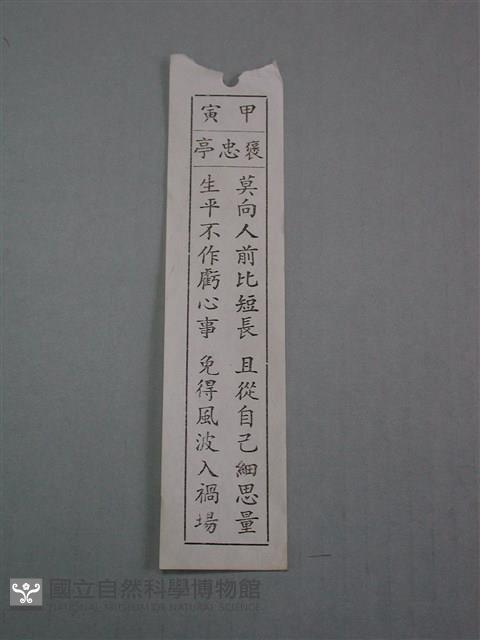 甲寅
褒忠亭
莫向人前比短長 且從自己細思量
生平不作虧心事 免得風波入禍場
國立自然科學博物館
NATIONAL MUSEUM OF NATURAL SCIENCE